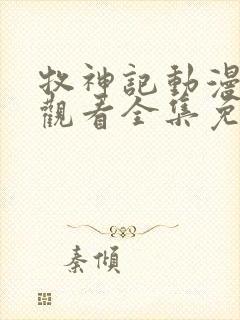 牧神記動漫
觀看全集免
秦傾